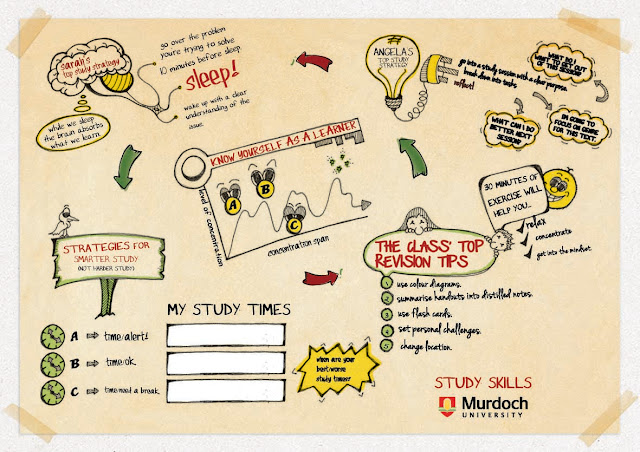 sarah's
top study strategy
go over the problem
you're trying to solve
10 minutes before sleep.
sleep!
wake up with a clear
understanding of the
issue.
while we sleep
the brain absorbs
what we learn.
#1
ANGELA'S
TOP STUDY
STRATEGY
go into a study session with a clear purpose.
break down into tasks.
reflect!
WHAT DO I
WANT TO GET OUT
OF THIS SESSION?
WHAT CAN I DO
BETTER NEXT
SESSION?
I'M GOING TO
FOCUS ON GENRE
FOR THIS TEXT.
KNOW YOURSELF AS A LEARNER
level of concentration
A
B
C
concentration span
30 MINUTES OF
EXERCISE WILL
HELP YOU...
relax
concentrate
get into the mindset.
STRATEGIES FOR
SMARTER STUDY
(NOT HARDER STUDY)
THE CLASS' TOP
REVISION TIPS
1 use colour diagrams.
2 summarise handouts into distilled notes.
3 use flash cards.
4 set personal challenges.
5 change location.
MY STUDY TIMES
A ⇨ time/alert!
B ⇨ time/ok.
C ⇨ time/need a break.
when are your
best/worse
study times?
STUDY SKILLS
Murdoch
UNIVERSITY